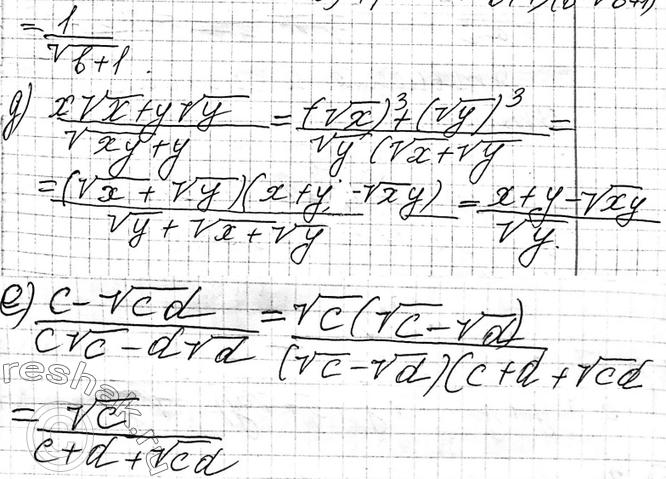 = 1/(√b+1).
д) (x√x+y√y)/(√xy+y) = ((√x)³+(√y)³)/(√y (√x+√y) =
= ((√x+√y)(x+y-√xy))/(√y+√x+√y) = (x+y-√xy)/√y.
е) (c-√cd)/(c√c-d√d) = (√c(√c-√d))/((√c-√d)(c+d+√cd
= √c/(c+d+√cd)
reshak.ru